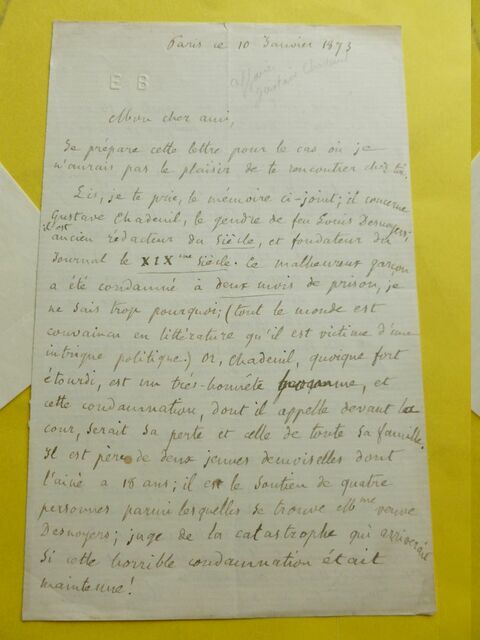 Paris le 10 Janvier 1873
affaire
Gustave Chadeuil
E B
Mon cher ami,
Je prépare cette lettre pour le cas où je
n'aurais pas le plaisir de te rencontrer chez toi.
Lis, je te prie, le mémoire ci-joint; il concerne
Gustave Chadeuil, le gendre de feu Louis Desnoyers;
il est
ancien rédacteur du Siècle, et fondateur du
Journal le XIXme Siècle. Ce malheureux garçon
a été condamné à deux mois de prison, je
ne sais trop pourquoi; (tout le monde est
convaincu en littérature qu'il est victime d'une
intrigue politique.) Or, Chadeuil, quoique fort
étourdi, est un très-honnête homme, et
cette condamnation, dont il appelle devant la
cour, serait sa perte et celle de toute sa famille.
Il est père de deux jeunes demoiselles dont
l'ainé a 18 ans; il est le soutien de quatre
personnes parmi lesquelles se trouve Mme veuve
Desnoyers; juge de la catastrophe qui arriverait
si cette horrible condamnation était
maintenue!